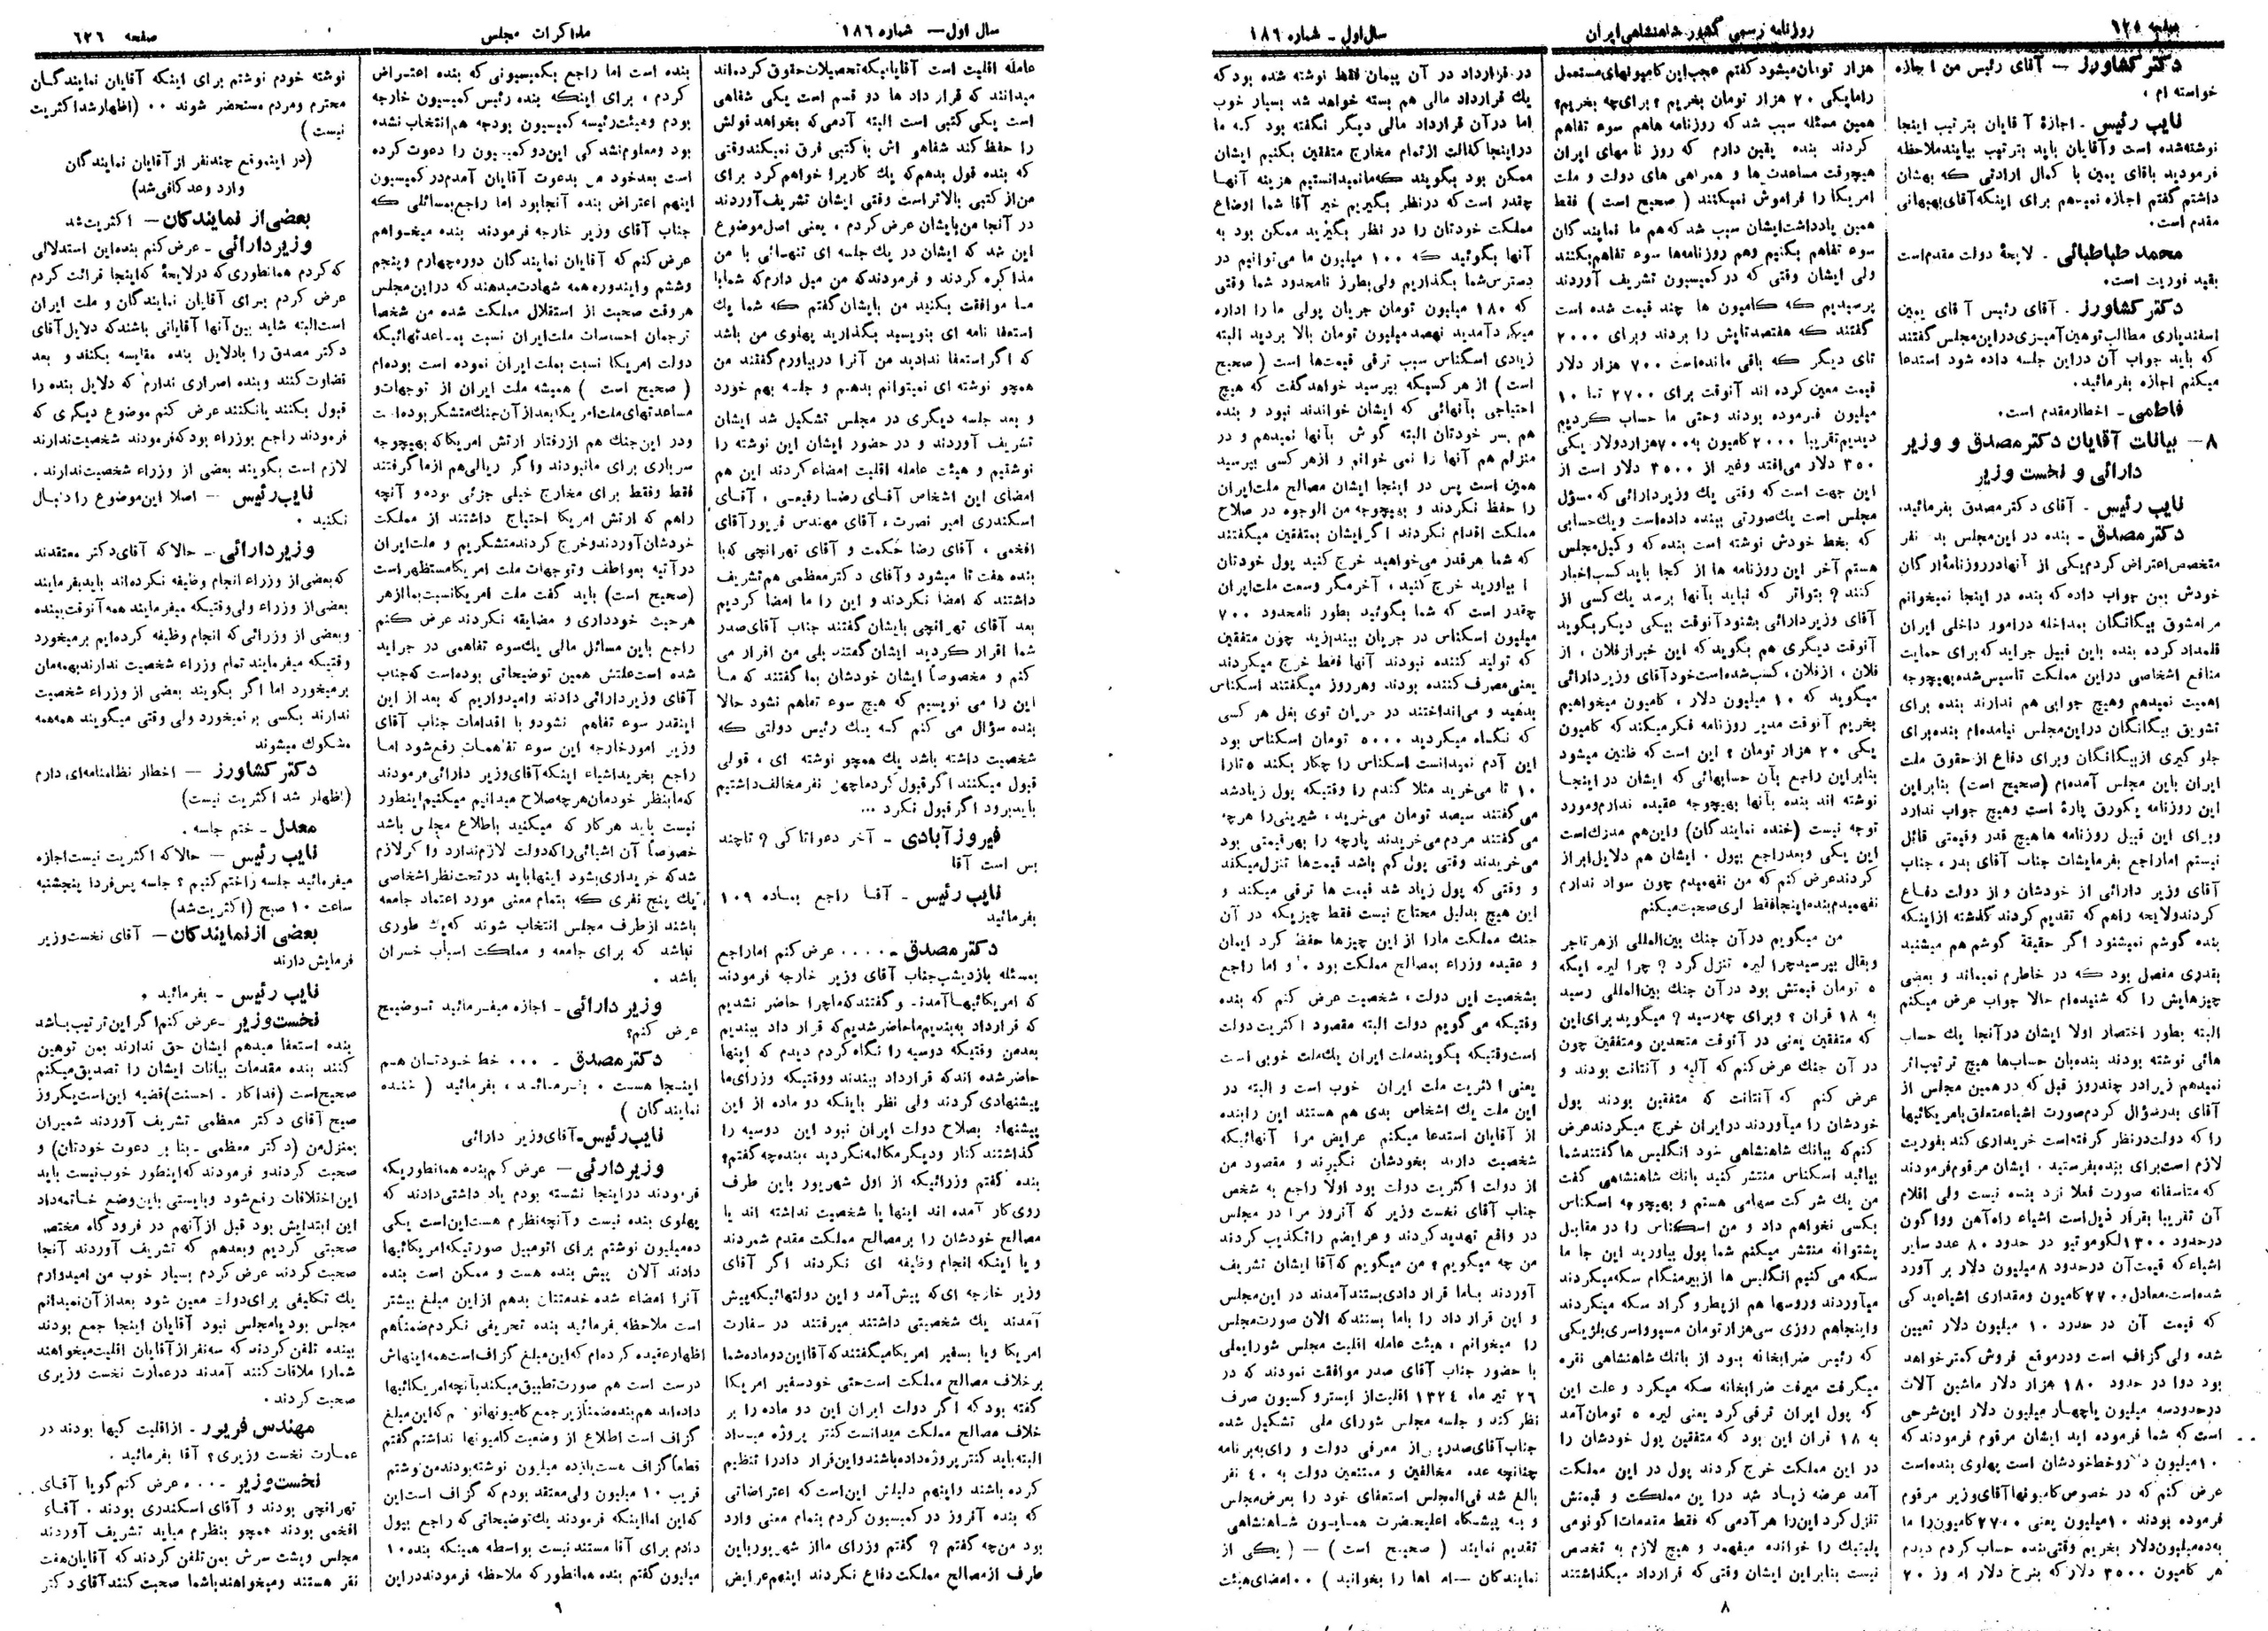 صفحه ٦٢٥
روزنامه رسمی کشور شاهنشاهی ایران
سال اول - شماره ١٨٦
دکتر کشاورز - آقای رئیس من اجازه
خواسته ام .
نایب رئیس - اجازهٔ آقایان بترتیب اینجا
نوشته شده است وآقایان باید بترتیب بیایند ملاحظه
فرمودید باقای یمین با کمال ارادتی که بهشان
داشتم گفتم اجازه نمیدهم برای اینکه آقای بهبهانی
مقدم است.
محمد طباطبائی - لایحهٔ دولت مقدم است
بقید فوریت است.
دکتر کشاورز - آقای رئیس آقای یمین
اسفندیاری مطالب توهین آمیزی در این مجلس گفتند
که باید جواب آن در این جلسه داده شود استدعا
میکنم اجازه بفرمائید.
فاطمی - اخطار مقدم است.
٨ - بیانات آقایان دکتر مصدق و وزیر
دارائی و نخست وزیر
نایب رئیس - آقای دکتر مصدق بفرمائید.
دکتر مصدق - بنده در این مجلس بد نفر
متخصص اعتراض کردم یکی از آنها در روزنامهٔ ارگان
خودش بمن جواب داده که بنده در اینجا نمیخوانم
مرا مشوق بیگانگان بمداخله در امور داخلی ایران
قلمداد کرده بنده باین قبیل جراید که برای حمایت
منافع اشخاصی در این مملکت تأسیس شده بهیچوجه
اهمیت نمیدهم وهیچ جوابی هم ندارند بنده برای
تشریق بیگانگان در این مجلس نیامده ام بنده برای
جلو گیری از بیگانگان وبرای دفاع از حقوق ملت
ایران باین مجلس آمده ام (صحیح است) بنابراین
این روزنامه یکورق پارهٔ است وهیچ جواب ندارد
وبرای این قبیل روزنامه ها هیچ قدر وقیمتی قائل
نیستم اما راجع بفرمایشات جناب آقای بدر ، جناب
آقای وزیر دارائی از خودشان واز دولت دفاع
کردند ولایحه راهم که تقدیم کردند گذشته از اینکه
بنده گوشم نمیشنود اگر حقیقة گوشم هم میشنید
بقدری مفصل بود که در خاطرم نمیماند و بعضی
چیزهایش را که شنیده ام حالا جواب عرض میکنم
البته بطور اختصار اولا ایشان در آنجا یك حساب
هائی نوشته بودند بنده بان حساب‌ها هیچ ترتیب اثر
نمیدهم زیرا در چند روز قبل که در همین مجلس از
آقای بدر سؤال کردم صورت اشیاء متعلق بامریکائیها
را که دولت در نظر گرفته است خریداری کند بفوریت
لازم است برای بنده بفرستید . ایشان مرقوم فرمودند
که متأسفانه صورت فعلا نزد بنده نیست ولی اقلام
آن تقریبا بقرار ذیل است اشیاء راه آهن وواگون
در حدود ١٣٠٠ لکوموتیو در حدود ٨٠ عدد سایر
اشیاء که قیمت آن در حدود ٨ میلیون دلار بر آورد
شده است معادل ٢٧٠٠ کامیون ومقداری اشیاء یدکی
که قیمت آن در حدود ١٠ میلیون دلار تعیین
شده ولی گزاف است ودر موقع فروش کمتر خواهد
بود دوا در حدود ١٨٠ هزار دلار ماشین آلات
در حدود سه میلیون یا چهار میلیون دلار این شرحی
است که شما فرموده اید ایشان مرقوم فرمودند که
١٠ میلیون دلار وخط خودشان است پهلوی بنده است
عرض کنم که در خصوص کامیونها آقای وزیر مرقوم
فرموده بودند ١٠ میلیون یعنی ٢٧٠٠ کامیون را ما
به ده میلیون دلار بخریم وقتی بنده حساب کردم دیدم
هر کامیون ٣٥٠٠ دلار که بنرخ دلار امروز ٢٠
هزار تومان میشود گفتم عجب این کامیونهای مستعمل
را ما یکی ٢٠ هزار تومان بخریم ؟ برای چه بخریم؟
همین مسئله سبب شد که روزنامه ها هم سوء تفاهم
کردند بنده یقین دارم که روز نامهای ایران
هیچوقت مساعدت ها و همراهی های دولت و ملت
امریکا را فراموش نمیکنند ( صحیح است ) فقط
همین یادداشت ایشان سبب شد که هم ما نمایندگان
سوء تفاهم بکنیم وهم روزنامه‌ها سوء تفاهم بکنند
ولی ایشان وقتی که در کمیسیون تشریف آوردند
پرسیدیم که کامیون ها چند قیمت شده است
گفتند که هفتصدتایش را بردند وبرای ٢٠٠٠
تای دیگر که باقی مانده است ٧٠٠ هزار دلار
قیمت معین کرده اند آنوقت برای ٢٧٠٠ تا ١٠
میلیون فرموده بودند وحتی ما حساب کردیم
دیدیم تقریبا ٢٠٠٠ کامیون به ٧٠٠ هزار دولار یکی
٣٥٠ دلار می‌افتد وغیر از ٣٥٠٠ دلار است از
این جهت است که وقتی یك وزیر دارائی که مسؤل
مجلس است یك صورتی ببنده داده است ویك حسابی
که بخط خودش نوشته است بنده که وکیل مجلس
هستم آخر این روزنامه ها از کجا باید کسب اخبار
کنند ؟ بتواتر که نباید بآنها برسد یك کسی از
آقای وزیر دارائی بشنود آنوقت بیکی دیگر بگوید
آنوقت دیگری هم بگوید که این خبر از فلان ، از
فلان ، از فلان ، کسب شده است خود آقای وزیر دارائی
میگوید که ١٠ میلیون دلار ، کامیون میخواهیم
بخریم آنوقت مدیر روزنامه فکر میکند که کامیون
یکی ٢٠ هزار تومان ؟ این است که ظنین میشود
بنابراین راجع بآن حسابهائی که ایشان در اینجا
نوشته اند بنده بآنها بهیچوجه عقیده ندارم ومورد
توجه نیست (خنده نمایندگان) واین هم مدرك است
این یکی وبعد راجع بپول . ایشان هم دلایل ابراز
کردند عرض کنم که من نفهمیدم چون سواد ندارم
نفهمیدم بنده اینجا فقط اری صحبت میکنم
من میگویم در آن جنك بین‌المللی از هر تاجر
وبقال بپرسید چرا لیره تنزل کرد ؟ چرا لیره اینکه
٥ تومان قیمتش بود در آن جنك بین‌المللی رسید
به ١٨ قران ؟ وبرای چه رسید ؟ میگوید برای این
که متفقین یعنی در آنوقت متحدین ومتفقین چون
در آن جنك عرض کنم که آلیه و آنتانت بودند و
عرض کنم که آنتانت که متفقین بودند پول
خودشان را میآوردند در ایران خرج میکردند عرض
کنم که ببانك شاهنشاهی خود انگلیس ها گفتند شما
بیائید اسکناس منتشر کنید بانك شاهنشاهی گفت
من یك شرکت سهامی هستم و بهیچوجه اسکناس
بکسی نخواهم داد و من اسکناس را در مقابل
پشتوانه منتشر میکنم شما پول بیاورید این جا ما
سکه می کنیم انگلیس ها از بیرمنگام سکه میکردند
میآوردند وروسها هم از پطروگراد سکه میکردند
واینجا هم روزی سی هزار تومان مسیو واسری بلژیکی
که رئیس ضرابخانه بود از بانك شاهنشاهی نقره
میگرفت میرفت ضرابخانه سکه میکرد و علت این
که پول ایران ترقی کرد یعنی لیره ٥ تومان آمد
به ١٨ قران این بود که متفقین پول خودشان را
در این مملکت خرج کردند پول در این مملکت
آمد عرضه زیاد شد در این مملکت و قیمتش
تنزل کرد این را هر آدمی که فقط مقدمات اکونومی
پلیتیك را خوانده میفهمد و هیچ لازم به تخصص
نیست بنابراین ایشان وقتی که قرارداد میگذاشتند
در قرارداد در آن پیمان فقط نوشته شده بود که
یك قرارداد مالی هم بسته خواهد شد بسیار خوب
اما در آن قرارداد مالی دیگر نگفته بود که ما
در اینجا کفالت از تمام مخارج متفقین بکنیم ایشان
ممکن بود بگویند که ما نمیدانستیم هزینه آنها
چقدر است که در نظر بگیریم خیر آقا شما اوضاع
مملکت خودتان را در نظر بگیرید ممکن بود به
آنها بگوئید که ١٠٠ میلیون ما می‌توانیم در
دسترس شما بگذاریم ولی بطرز نامحدود شما وقتی
که ١٨٠ میلیون تومان جریان پولی ما را اداره
میکرد آمدید نهصد میلیون تومان بالا بردید البته
زیادی اسکناس سبب ترقی قیمت‌ها است ( صحیح
است ) از هر کسیکه بپرسید خواهد گفت که هیچ
احتیاجی بآنهائی که ایشان خواندند نبود و بنده
هم بسر خودتان البته گوش بآنها نمیدهم و در
منزلم هم آنها را نمی خوانم و از هر کسی بپرسید
همین است پس در اینجا ایشان مصالح ملت ایران
را حفظ نکردند و بهیچوجه من الوجوه در صلاح
مملکت اقدام نکردند اگر ایشان بمتفقین میگفتند
که شما هر قدر می‌خواهید خرج کنید پول خودتان
را بیاورید خرج کنید ، آخر مگر وسعت ملت ایران
چقدر است که شما بگوئید بطور نامحدود ٧٠٠
میلیون اسکناس در جریان بیندازید چون متفقین
که تولید کننده نبودند آنها فقط خرج میکردند
یعنی مصرف کننده بودند وهر روز میگفتند اسکناس
بدهید و می‌انداختند در جریان توی بغل هر کسی
که نگاه میکردید ٥٠٠٠ تومان اسکناس بود
این آدم نمیدانست اسکناس را چکار بکند ٥ تارا
١٠ تا می‌خرید مثلا گندم را وقتیکه پول زیاد شد
می‌گفتند سیصد تومان می‌خرید ، شیرینی را هر چه
می‌گفتند مردم می‌خریدند پارچه را بهر قیمتی بود
می‌خریدند وقتی پول کم باشد قیمت‌ها تنزل میکند
و وقتی که پول زیاد شد قیمت ها ترقی میکند و
این هیچ بدلیل محتاج نیست فقط چیزیکه در آن
جنك مملکت مارا از این چیزها حفظ کرد ایمان
و عقیده وزراء بمصالح مملکت بود . و اما راجع
بشخصیت این دولت ، شخصیت عرض کنم که بنده
وقتیکه می‌گویم دولت البته مقصود اکثریت دولت
است وقتیکه بگویند ملت ایران یك ملت خوبی است
یعنی اکثریت ملت ایران خوب است و البته در
این ملت یك اشخاص بدی هم هستند این را بنده
از آقایان استدعا میکنم عرایض مرا آنهائیکه
شخصیت دارند بخودشان نگیرند و مقصود من
از دولت اکثریت دولت بود اولا راجع به شخص
جناب آقای نخست وزیر که آنروز مرا در مجلس
در واقع تهدید کردند و عرایضم را تکذیب کردند
من چه میگویم ؟ من میگویم که آقا ایشان تشریف
آوردند با ما قرار دادی بستند آمدند در این مجلس
و این قرار داد را باما بستند که الان صورت مجلس
را میخوانم ، هیئت عامله اقلیت مجلس شورایملی
با حضور جناب آقای صدر موافقت نمودند که در
٢٦ تیر ماه ١٣٢٤ اقلیت از ابستروکسیون صرف
نظر کند و جلسه مجلس شورای ملی تشکیل شده
جناب آقای صدر پس از معرفی دولت و رای به برنامه
چنانچه عده مخالفین و ممتنعین دولت به ٤٠ نفر
بالغ شد فی‌المجلس استعفای خود را بعرض مجلس
و به پیشگاه اعلیحضرت همایون شاهنشاهی
تقدیم نمایند ( صحیح است ) - ( یکی از
نمایندگان - امضاها را بخوانید ) .. امضای هیئت
٨
سال اول - شماره ١٨٦
مذاکرات مجلس
صفحه ٦٢٦
عامله اقلیت است آقایانیکه تحصیلات حقوق کرده‌اند
میدانند که قرار داد ها دو قسم است یکی شفاهی
است یکی کتبی است البته آدمی که بخواهد قولش
را حفظ کند شفاهی اش با کتبی فرق نمیکند وقتی
که بنده قول بدهم که یك کاریرا خواهم کرد برای
من از کتبی بالاتر است وقتی ایشان تشریف آوردند
در آنجا من بایشان عرض کردم ، یعنی اصل موضوع
این شد که ایشان در یك جلسه ای تنهائی با من
مذاکره کردند و فرمودند که من میل دارم که شما با
ما موافقت بکنید من بایشان گفتم که شما یك
استعفا نامه ای بنویسید بگذارید پهلوی من باشد
که اگر استعفا ندادید من آنرا دربیاورم گفتند من
همچو نوشته ای نمیتوانم بدهم و جلسه بهم خورد
و بعد جلسه دیگری در مجلس تشکیل شد ایشان
تشریف آوردند و در حضور ایشان این نوشته را
نوشتیم و هیئت عامله اقلیت امضاء کردند این هم
امضای این اشخاص آقای رضا رفیعی ، آقای
اسکندری امیر نصرت، آقای مهندس فریور آقای
افخمی ، آقای رضا حکمت و آقای تهرانچی که با
بنده هفت تا میشود وآقای دکتر معظمی هم تشریف
داشتند که امضا نکردند و این را ما امضا کردیم
بعد آقای تهرانچی بایشان گفتند جناب آقای صدر
شما اقرار کردید ایشان گفتند بلی من اقرار می
کنم و مخصوصا ایشان خودشان بما گفتند که ما
این را می نویسیم که هیچ سوء تفاهم نشود حالا
بنده سؤال می کنم که یك رئیس دولتی که
شخصیت داشته باشد یك همچو نوشته ای ، قولی
قبول میکنند اگر قبول کردما چهل نفر مخالف داشتیم
باید برود اگر قبول نکرد ...
فیروز آبادی - آخر دعوا تا کی ؟ تا چند
بس است آقا
نایب رئیس - آقا راجع بماده ١٠٩
بفرمائید
دکتر مصدق - .... عرض کنم اما راجع
بمسئله بازدیشب جناب آقای وزیر خارجه فرمودند
که امریکائیها آمدند و گفتند که ما چرا حاضر نشدیم
که قرارداد به بندیم ما حاضر شدیم که قرار داد ببندیم
بعد من وقتیکه دوسیه را نگاه کردم دیدم که اینها
حاضر شده اند که قرارداد ببندند ووقتیکه وزرای ما
پیشنهادی کردند ولی نظر باینکه دو ماده از این
پیشنهاد بصلاح دولت ایران نبود این دوسیه را
گذاشتند کنار ودیگر مکالمه نکردید ، بنده چه گفتم؟
بنده گفتم وزرائیکه از اول شهریور باین طرف
روی کار آمده اند اینها یا شخصیت نداشته اند یا
مصالح خودشان را بر مصالح مملکت مقدم شمردند
و یا اینکه انجام وظیفه ای نکردند اگر آقای
وزیر خارجه ای که پیش آمد و این دولتهائیکه پیش
آمدند یك شخصیتی داشتند میرفتند در سفارت
امریکا ویا بسفیر امریکا میگفتند که آقا این دو ماده شما
بر خلاف مصالح مملکت است حتی خود سفیر امریکا
گفته بود که اگر دولت ایران این دو ماده را بر
خلاف مصالح مملکت میدانست کنتر پروژه میداد
البته باید کنتر پروژه داده باشند واین قرار دادرا تنظیم
کرده باشند واینهم دلیلش این است که اعتراضاتی
که بنده آنروز در کمیسیون کردم بتمام معنی وارد
بود من چه گفتم ؟ گفتم وزرای مااز شهریور باین
طرف از مصالح مملکت دفاع نکردند اینهم عرایض
بنده است اما راجع بکمیسیونی که بنده اعتراض
کردم ، برای اینکه بنده رئیس کمیسیون خارجه
بودم وهیئت رئیسه کمیسیون بودجه هم انتخاب نشده
بود ومعلوم نشد کی این دو کمیسیون را دعوت کرده
است بعد خود من بدعوت آقایان آمدم در کمیسیون
اینهم اعتراض بنده آنجا بود اما راجع بمسائلی که
جناب آقای وزیر خارجه فرمودند بنده میخواهم
عرض کنم که آقایان نمایندگان دوره چهارم وپنجم
وششم و ایندوره همه شهادت میدهند که در این مجلس
هر وقت صحبت از استقلال مملکت شده من شخصا
ترجمان احساسات ملت ایران نسبت بمساعدتهائیکه
دولت امریکا نسبت بملت ایران نموده است بوده‌ام
( صحیح است ) همیشه ملت ایران از توجهات و
مساعدتهای ملت امریکا بعد از آن جنك متشکر بوده است
ودر این جنك هم از رفتار ارتش امریکا که بهیچوجه
سرباری برای ما نبودند واگر ریالی هم از ما گرفتند
فقط وفقط برای مخارج خیلی جزئی بوده و آنچه
راهم که ارتش امریکا احتیاج داشتند از مملکت
خودشان آوردند وخرج کردند متشکریم و ملت ایران
در آتیه بعواطف وتوجهات ملت امریکا مستظهر است
(صحیح است) باید گفت ملت امریکا نسبت بما از هر
هرحیث خودداری و مضایقه نکردند عرض کنم
راجع باین مسائل مالی یك سوء تفاهمی در جراید
شده است علتش همین توضیحاتی بوده است که جناب
آقای وزیر دارائی دادند وامیدواریم که بعد از این
اینقدر سوء تفاهم نشود و با اقدامات جناب آقای
وزیر امور خارجه این سوء تفاهمات رفع شود اما
راجع بخرید اشیاء اینکه آقای وزیر دارائی فرمودند
که ما بنظر خودمان هر چه صلاح میدانیم میکنیم اینطور
نیست باید هر کار که میکنید باطلاع مجلس باشد
خصوصاً آن اشیائی را که دولت لازم ندارد واگر لازم
شد که خریداری بشود اینها باید در تحت نظر اشخاصی
یك پنج نفری که بتمام معنی مورد اعتماد جامعه
باشند از طرف مجلس انتخاب شوند که یك طوری
نباشد که برای جامعه و مملکت اسباب خسران
باشد .
وزیر دارائی - اجازه میفرمائید توضیح
عرض کنم؟
دکتر مصدق - ... خط خودتان هم
اینجا هست . بفرمائید ، بفرمائید ( خنده
نمایندگان )
نایب رئیس - آقای وزیر دارائی
وزیر دارئی - عرض کنم بنده همانطوریکه
فرمودند در اینجا نشسته بودم یاد داشتی دادند که
پهلوی بنده نیست وآنچه نظرم هست این است یکی
ده میلیون نوشتم برای اتومبیل صورتیکه امریکائیها
دادند الان پیش بنده هست و ممکن است بنده
آنرا امضاء شده خدمتتان بدهم از این مبلغ بیشتر
است ملاحظه بفرمائید بنده تحریفی نکردم ضمناً هم
اظهار عقیده کرده ام که این مبلغ گزاف است همه اینهاش
درست است هم صورت تطبیق میکند بآنچه امریکائیها
داده اند هم بنده ضمناً زیر جمع کامیونها نوشتم که این مبلغ
گزاف است اطلاع از وضعیت کامیونها نداشتم گفتم
قطعاً گزاف هست یازده میلیون نوشته بودند من نوشتم
قریب ١٠ میلیون ولی معتقد بودم که گزاف است این
که این اما اینکه فرمودند یك توضیحاتی که راجع بپول
دادم برای آقا مستند نیست بواسطه همینکه بنده ١٠
میلیون گفتم بنده همانطور که ملاحظه فرمودند در این
نوشته خودم نوشتم برای اینکه آقایان نمایندگان
محترم ومردم مستحضر شوند .. (اظهار شد اکثریت
نیست )
(در اینموقع چند نفر از آقایان نمایندگان
وارد وعده کافی شد)
بعضی از نمایندگان - اکثریت شد
وزیر دارائی - عرض کنم بنده این استدلالی
که کردم همانطوری که در لایحهٔ که اینجا قرائت کردم
عرض کردم برای آقایان نمایندگان و ملت ایران
است البته شاید بین آنها آقایانی باشند که دلایل آقای
دکتر مصدق را بادلایل بنده مقایسه بکنند و بعد
قضاوت کنند وبنده اصراری ندارم که دلایل بنده را
قبول بکنند یا نکنند عرض کنم موضوع دیگری که
فرمودند راجع بوزراء بود که فرمودند شخصیت ندارند
لازم است بگویند بعضی از وزراء شخصیت ندارند .
نایب رئیس - اصلا این موضوع را دنبال
نکنید .
وزیر دارائی - حالا که آقای دکتر معتقدند
که بعضی از وزراء انجام وظیفه نکرده‌اند باید بفرمایند
بعضی از وزراء ولی وقتیکه میفرمایند همه آنوقت ببنده
وبعضی از وزرائی که انجام وظیفه کرده‌ایم برمیخورد
وقتیکه میفرمایند تمام وزراء شخصیت ندارند بهمه‌مان
برمیخورد اما اگر بگویند بعضی از وزراء شخصیت
ندارند بکسی بر نمیخورد ولی وقتی میگویند همه همه
مشکوك میشوند
دکتر کشاورز - اخطار نظامنامه‌ای دارم
(اظهار شد اکثریت نیست)
معدل - ختم جلسه .
نایب رئیس - حالا که اکثریت نیست اجازه
میفرمائید جلسه راختم کنیم ؟ جلسه پس فردا پنجشنبه
ساعت ١٠ صبح (اکثریت شد)
بعضی از نمایندگان - آقای نخست وزیر
فرمایش دارند
نایب رئیس - بفرمائید .
نخست وزیر - عرض کنم اگر این ترتیب باشد
بنده استعفا میدهم ایشان حق ندارند بمن توهین
کنند بنده مقدمات بیانات ایشان را تصدیق میکنم
صحیح است (فداکار . احسنت) قضیه این است یکروز
صبح آقای دکتر معظمی تشریف آوردند شمیران
بمنزل من (دکتر معظمی - بنا بر دعوت خودتان) و
صحبت کردند و فرمودند که اینطور خوب نیست باید
این اختلافات رفع شود و بایستی باین وضع خاتمه داد
این ابتدایش بود قبل از آنهم در فرودگاه مختصر
صحبتی کردیم وبعدهم که تشریف آوردند آنجا
صحبت کردند عرض کردم بسیار خوب من امیدوارم
یك تکلیفی برای دولت معین شود بعد از آن نمیدانم
مجلس بود یا مجلس نبود آقایان اینجا جمع بودند
ببنده تلفن کردند که سه نفر از آقایان اقلیت میخواهند
شمارا ملاقات کنند آمدند در عمارت نخست وزیری
صحبت کردند .
مهندس فریور - از اقلیت کیها بودند در
عمارت نخست وزیری؟ آقا بفرمائید .
نخست وزیر - ... عرض کنم گویا آقای
تهرانچی بودند و آقای اسکندری بودند . آقاء
افخمی بودند همچو بنظرم میاید تشریف آوردند
مجلس وپشت سرش بمن تلفن کردند که آقایان هفت
نفر هستند ومیخواهند باشما صحبت کنند آقای دکتر
٩